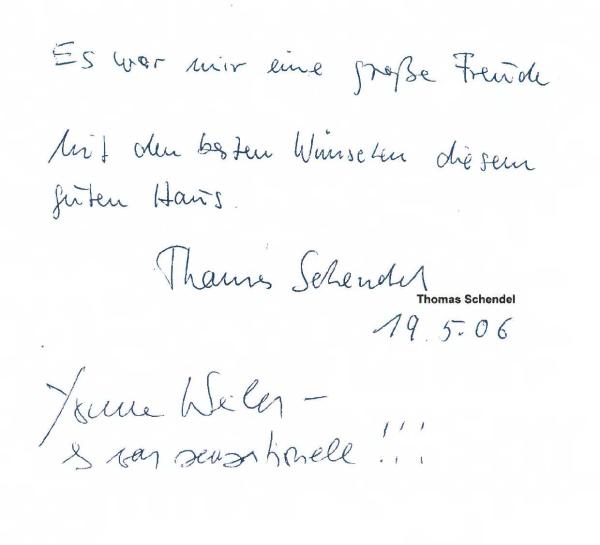 Es war mir eine große Freude
Mit den besten Wünschen diesem
guten Haus.
Thomas Schendel
Thomas Schendel
19.5.06
Yvonne –
es war sensationell !!!